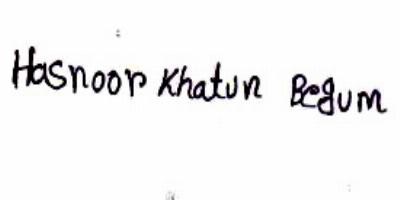 Hasnoor Khatun Begum